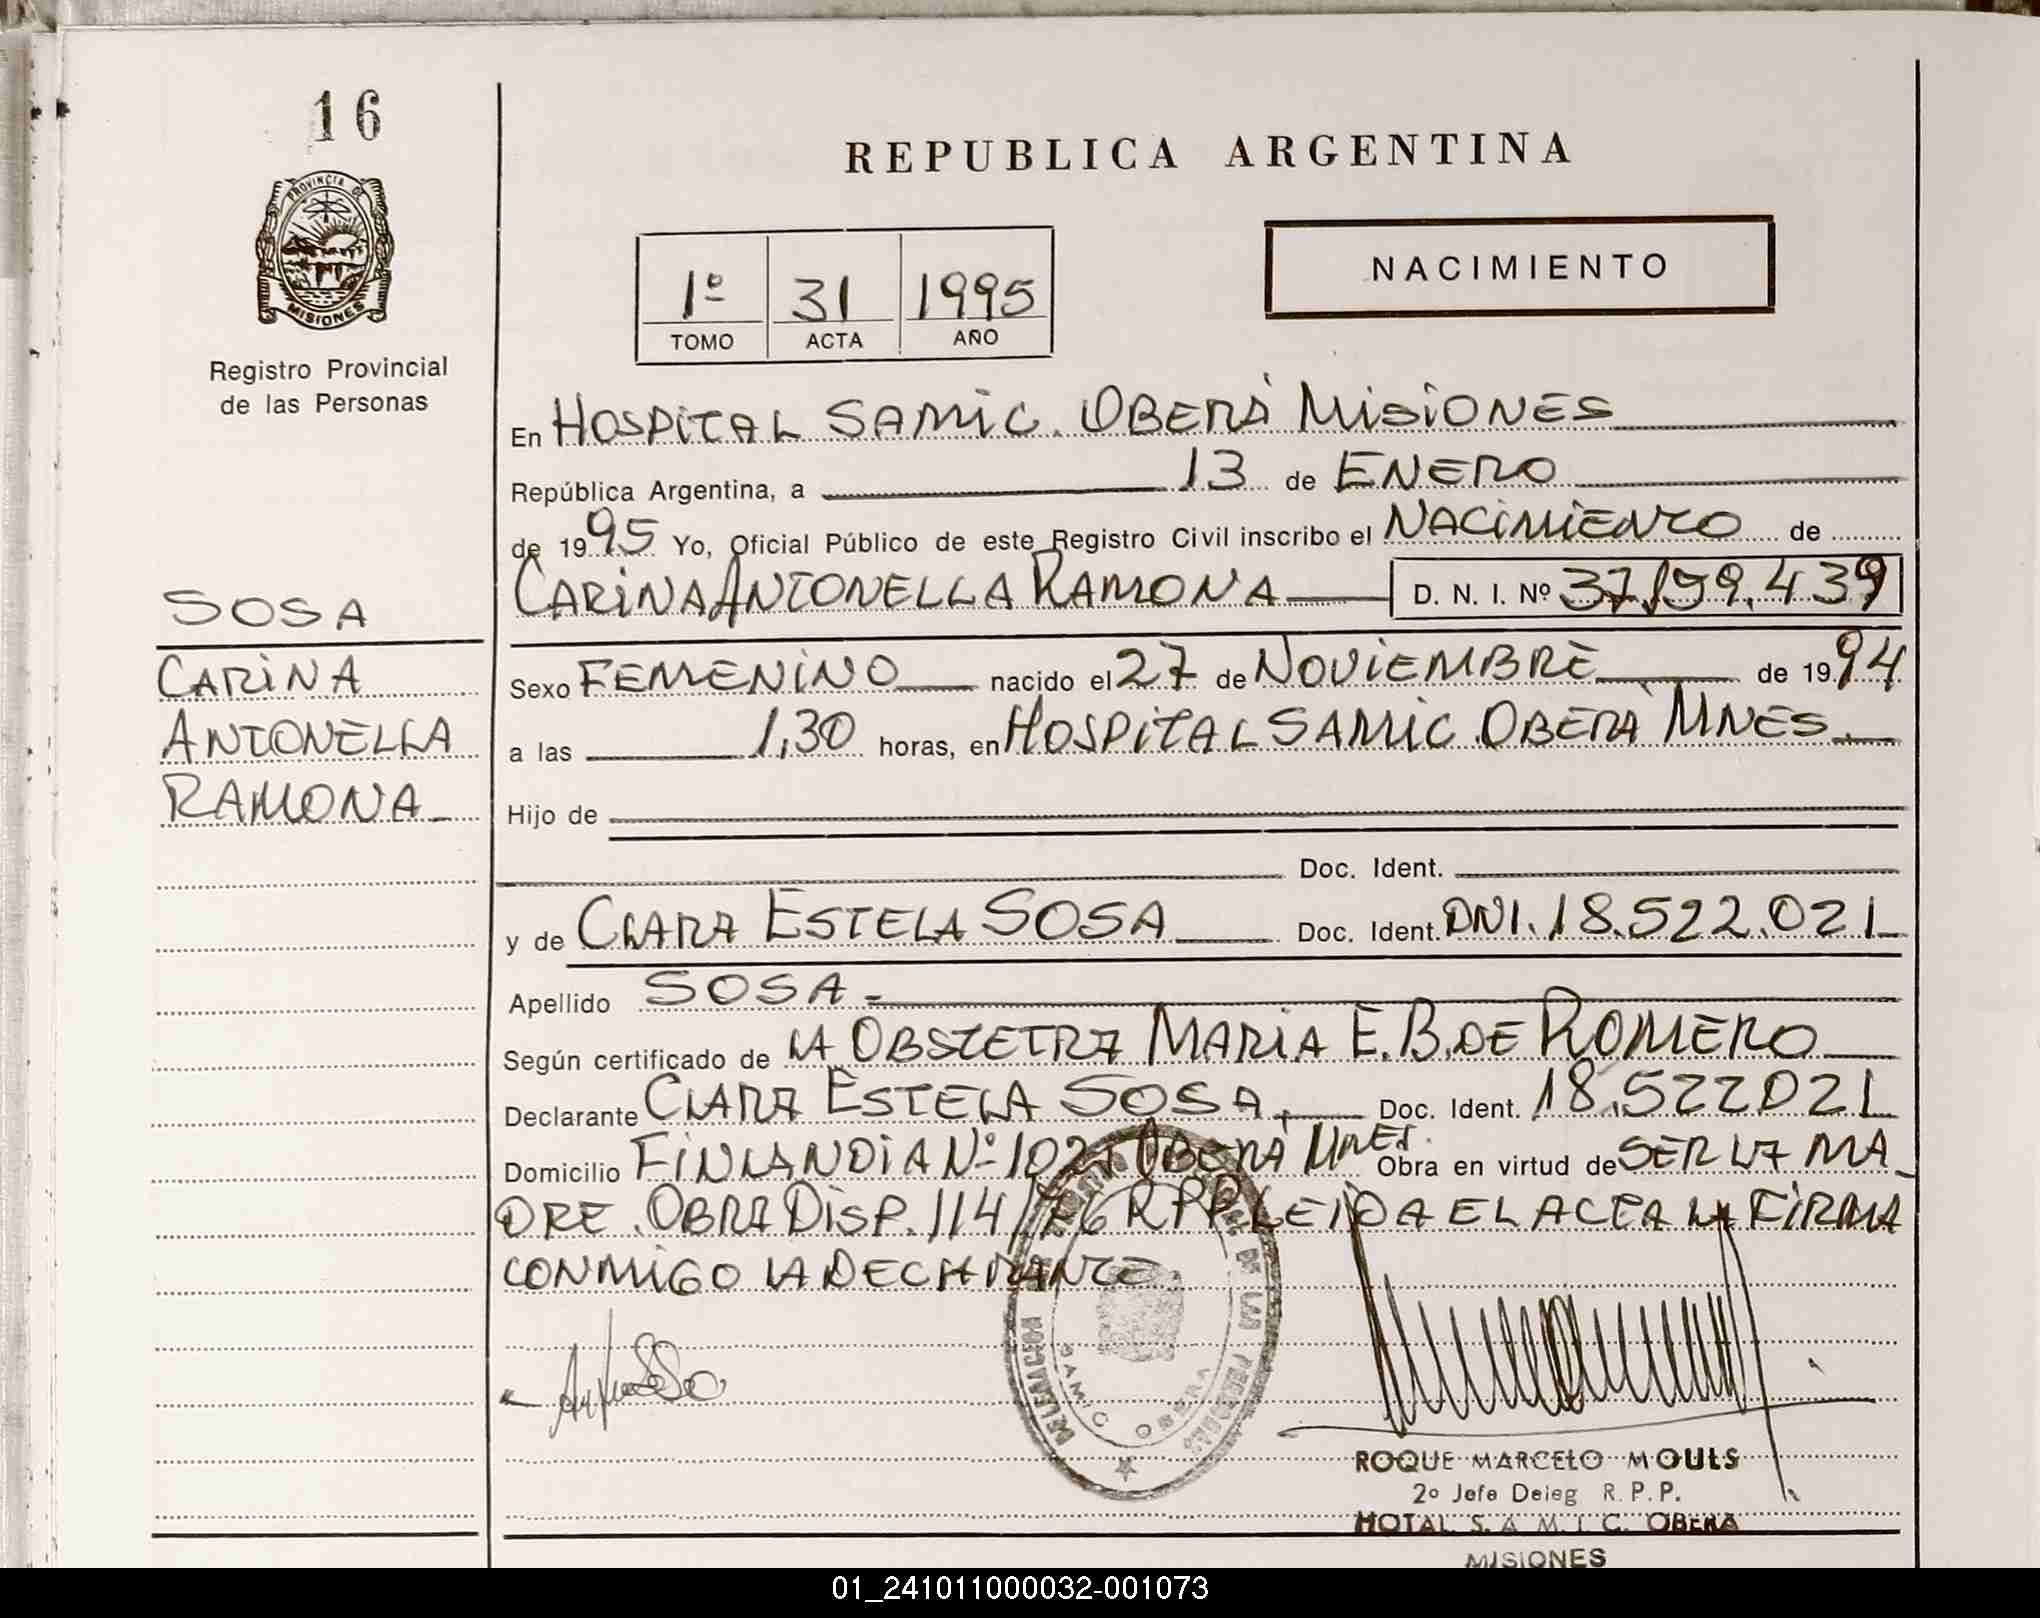 16
PROVINCIA DE
MISIONES
Registro Provincial
de las Personas
REPUBLICA ARGENTINA
1º 31 1995
TOMO ACTA AÑO
NACIMIENTO
En HOSPITAL SAMIC. OBERÁ MISIONES
República Argentina, a 13 de ENERO
de 1995 Yo, Oficial Público de este Registro Civil inscribo el NACIMIENTO de
CARINA ANTONELLA RAMONA D. N. I. Nº 37.159.439
SOSA
CARINA
ANTONELLA
RAMONA
Sexo FEMENINO nacido el 27 de NOVIEMBRE de 1994
a las 1,30 horas, en HOSPITAL SAMIC OBERÁ MNES.
Hijo de
Doc. Ident.
y de CLARA ESTELA SOSA Doc. Ident. DNI. 18.522.021
Apellido SOSA
Según certificado de LA OBSTETRA MARIA E. B. DE ROMERO
Declarante CLARA ESTELA SOSA Doc. Ident. 18.522021
Domicilio FINLANDIA Nº 102 OBERÁ MNES. Obra en virtud de SER LA MA
DRE. OBRA DISP. 114/76 RPP LEIDA EL ACTA LA FIRMA
CONMIGO LA DECLARANTE.
DELEGACION DE LAS PERSONAS
SAMIC OBERA
ROQUE MARCELO MOULS
2º Jefe Deleg R. P. P.
HOTAL S. A M. I. C. OBERA
MISIONES
01_241011000032-001073